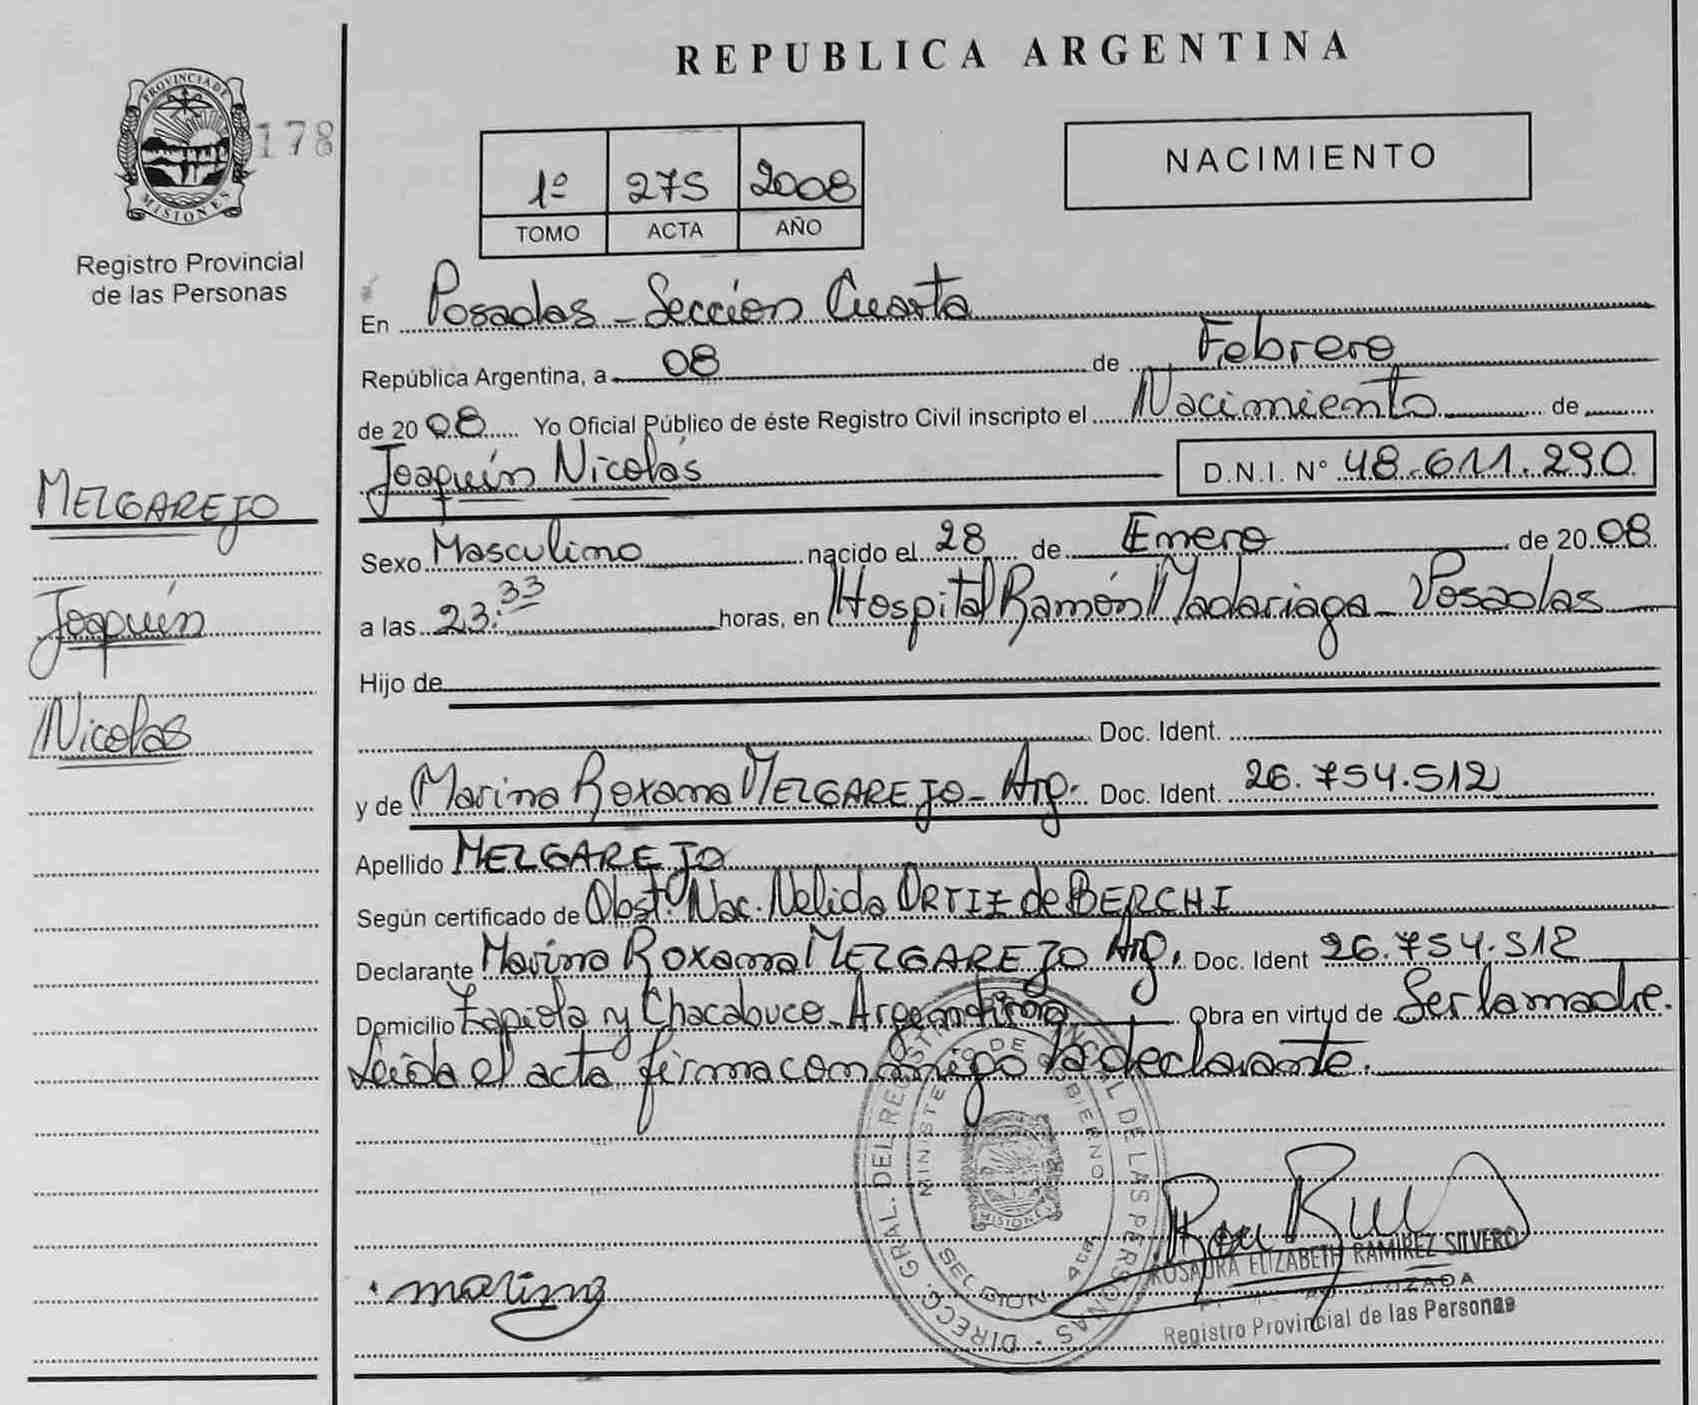 REPUBLICA ARGENTINA
PROVINCIA DE MISIONES
178
Registro Provincial
de las Personas
1º 275 2008
TOMO ACTA AÑO
NACIMIENTO
En Posadas - Sección Cuarta
República Argentina, a 08 de Febrero
de 2008 Yo Oficial Público de éste Registro Civil inscripto el Nacimiento de
Joaquín Nicolás D.N.I. Nº 48.611.290
MELGAREJO
Joaquín
Nicolas
Sexo Masculino nacido el 28 de Enero de 2008
a las 23:33 horas, en Hospital Ramón Madariaga - Posadas
Hijo de
Doc. Ident.
y de Marina Roxana MELGAREJO - Arg. Doc. Ident. 26.754.512
Apellido MELGAREJO
Según certificado de Obst. Nac. Nelida ORTIZ de BERCHI
Declarante Marina Roxana MELGAREJO Arg. Doc. Ident 26.754.512
Domicilio Zapiola y Chacabuco - Argentina Obra en virtud de Ser la madre.
Leida el acta firma conmigo la declarante.
DIRECC. GRAL. DEL DE LAS PERSONAS
MINISTERIO DE GOBIERNO
MISIONES
SECCION 4ta.
marina
ROSAURA ELIZABETH RAMIREZ SILVERO
Registro Provincial de las Personas